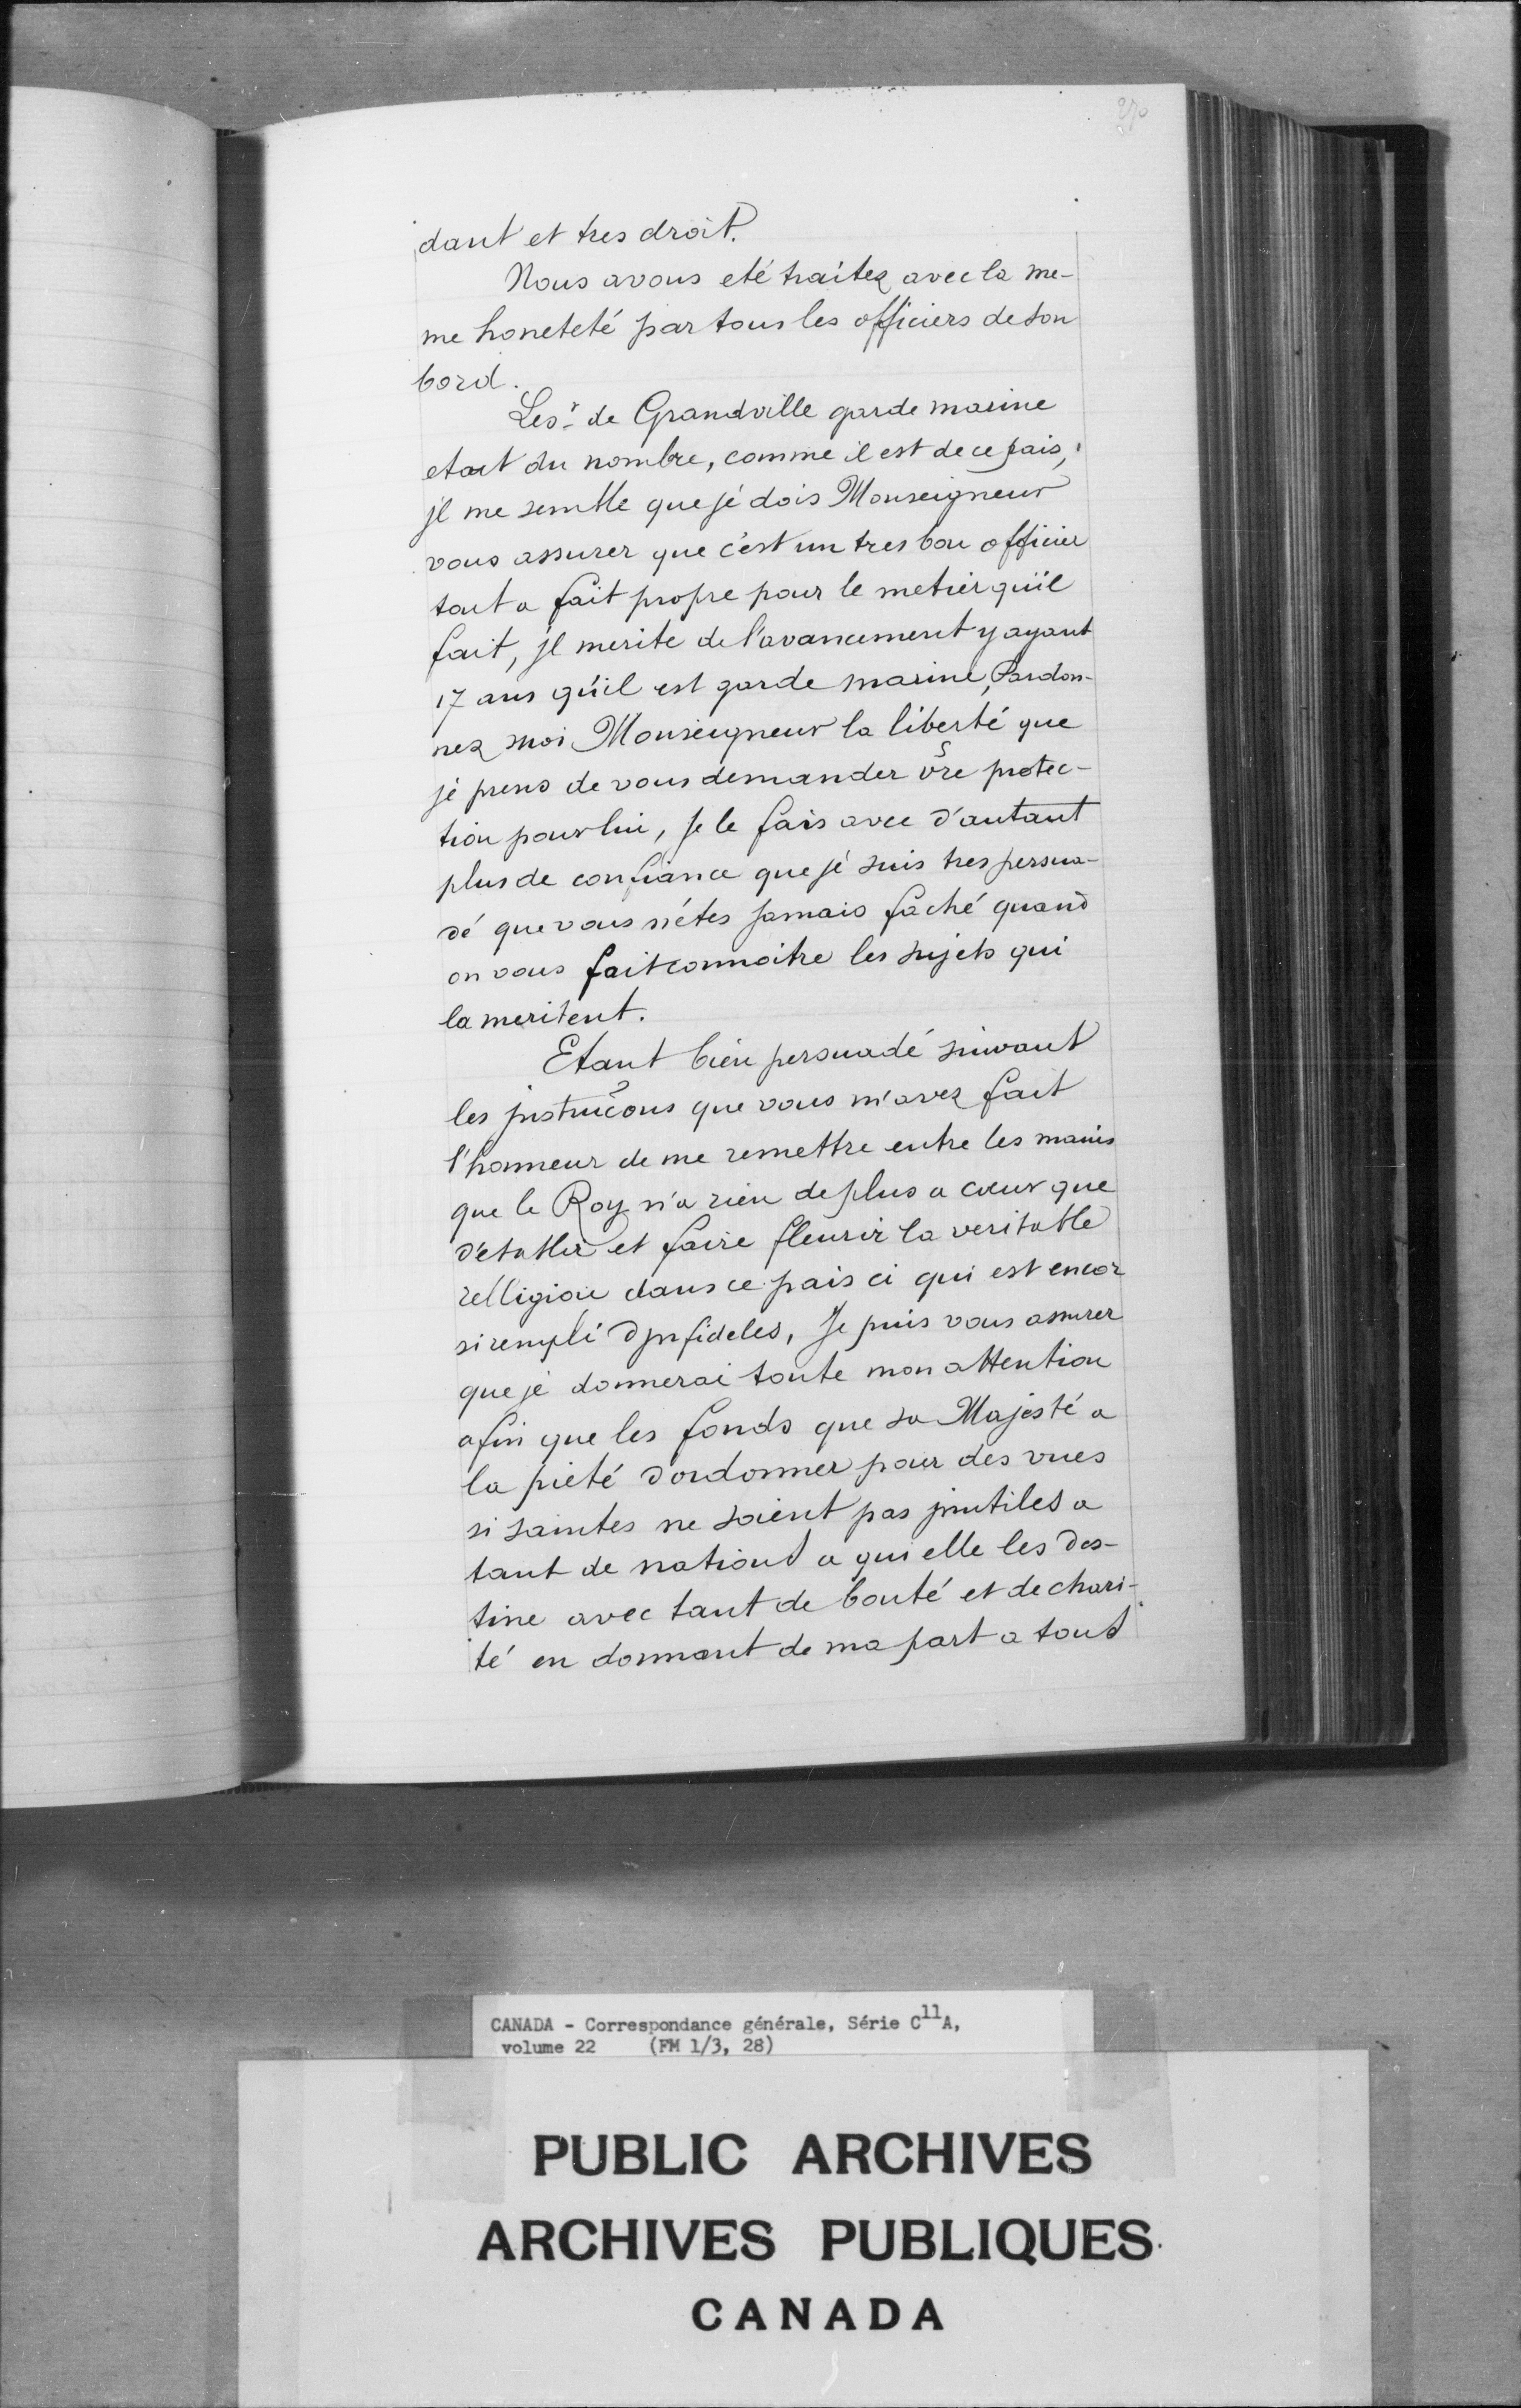 270
dant et tres droit.
Nous avons eté traitez avec la me-
me honeteté par tous les officiers de son
bord.
Le sr de Grandville garde marine
etoit du nombre, comme il est de ce pais,
jl me semble que je dois Monseigneur
vous assurer que c'est un tres bon officier
tout a fait propre pour le metier qu'il
fait, jl merite de l'avancement y ayant
17 ans qu'il est garde marine, Pardon-
nez moi Monseigneur la liberté que
je prens de vous demander vre protec-
tion pour lui, Je le fais avec d'autant
plus de confiance que je suis tres persua-
dé que vous n'étes jamais fâché quand
on vous fait connoitre les sujets qui
la meritent.
Etant bien persuadé suivant
les jnstrucōns que vous m'avez fait
l'honneur de me remettre entre les mains
que le Roy n'a rien de plus a cœur que
d'etablir et faire fleurir la veritable
relligion dans ce pais ci qui est encor
si rempli d'jnfideles, Je puis vous assurer
que je donnerai toute mon attention
afin que les fonds que sa Majesté a
la pieté d'ordonner pour des vues
si saintes ne soient pas jnutiles a
tant de nations a qui elle les des-
tine avec tant de bonté et de chari-
té en donnant de ma part a tous
CANADA - Correspondance générale, Série C11A,
volume 22 (FM 1/3, 28)
PUBLIC ARCHIVES
ARCHIVES PUBLIQUES
CANADA